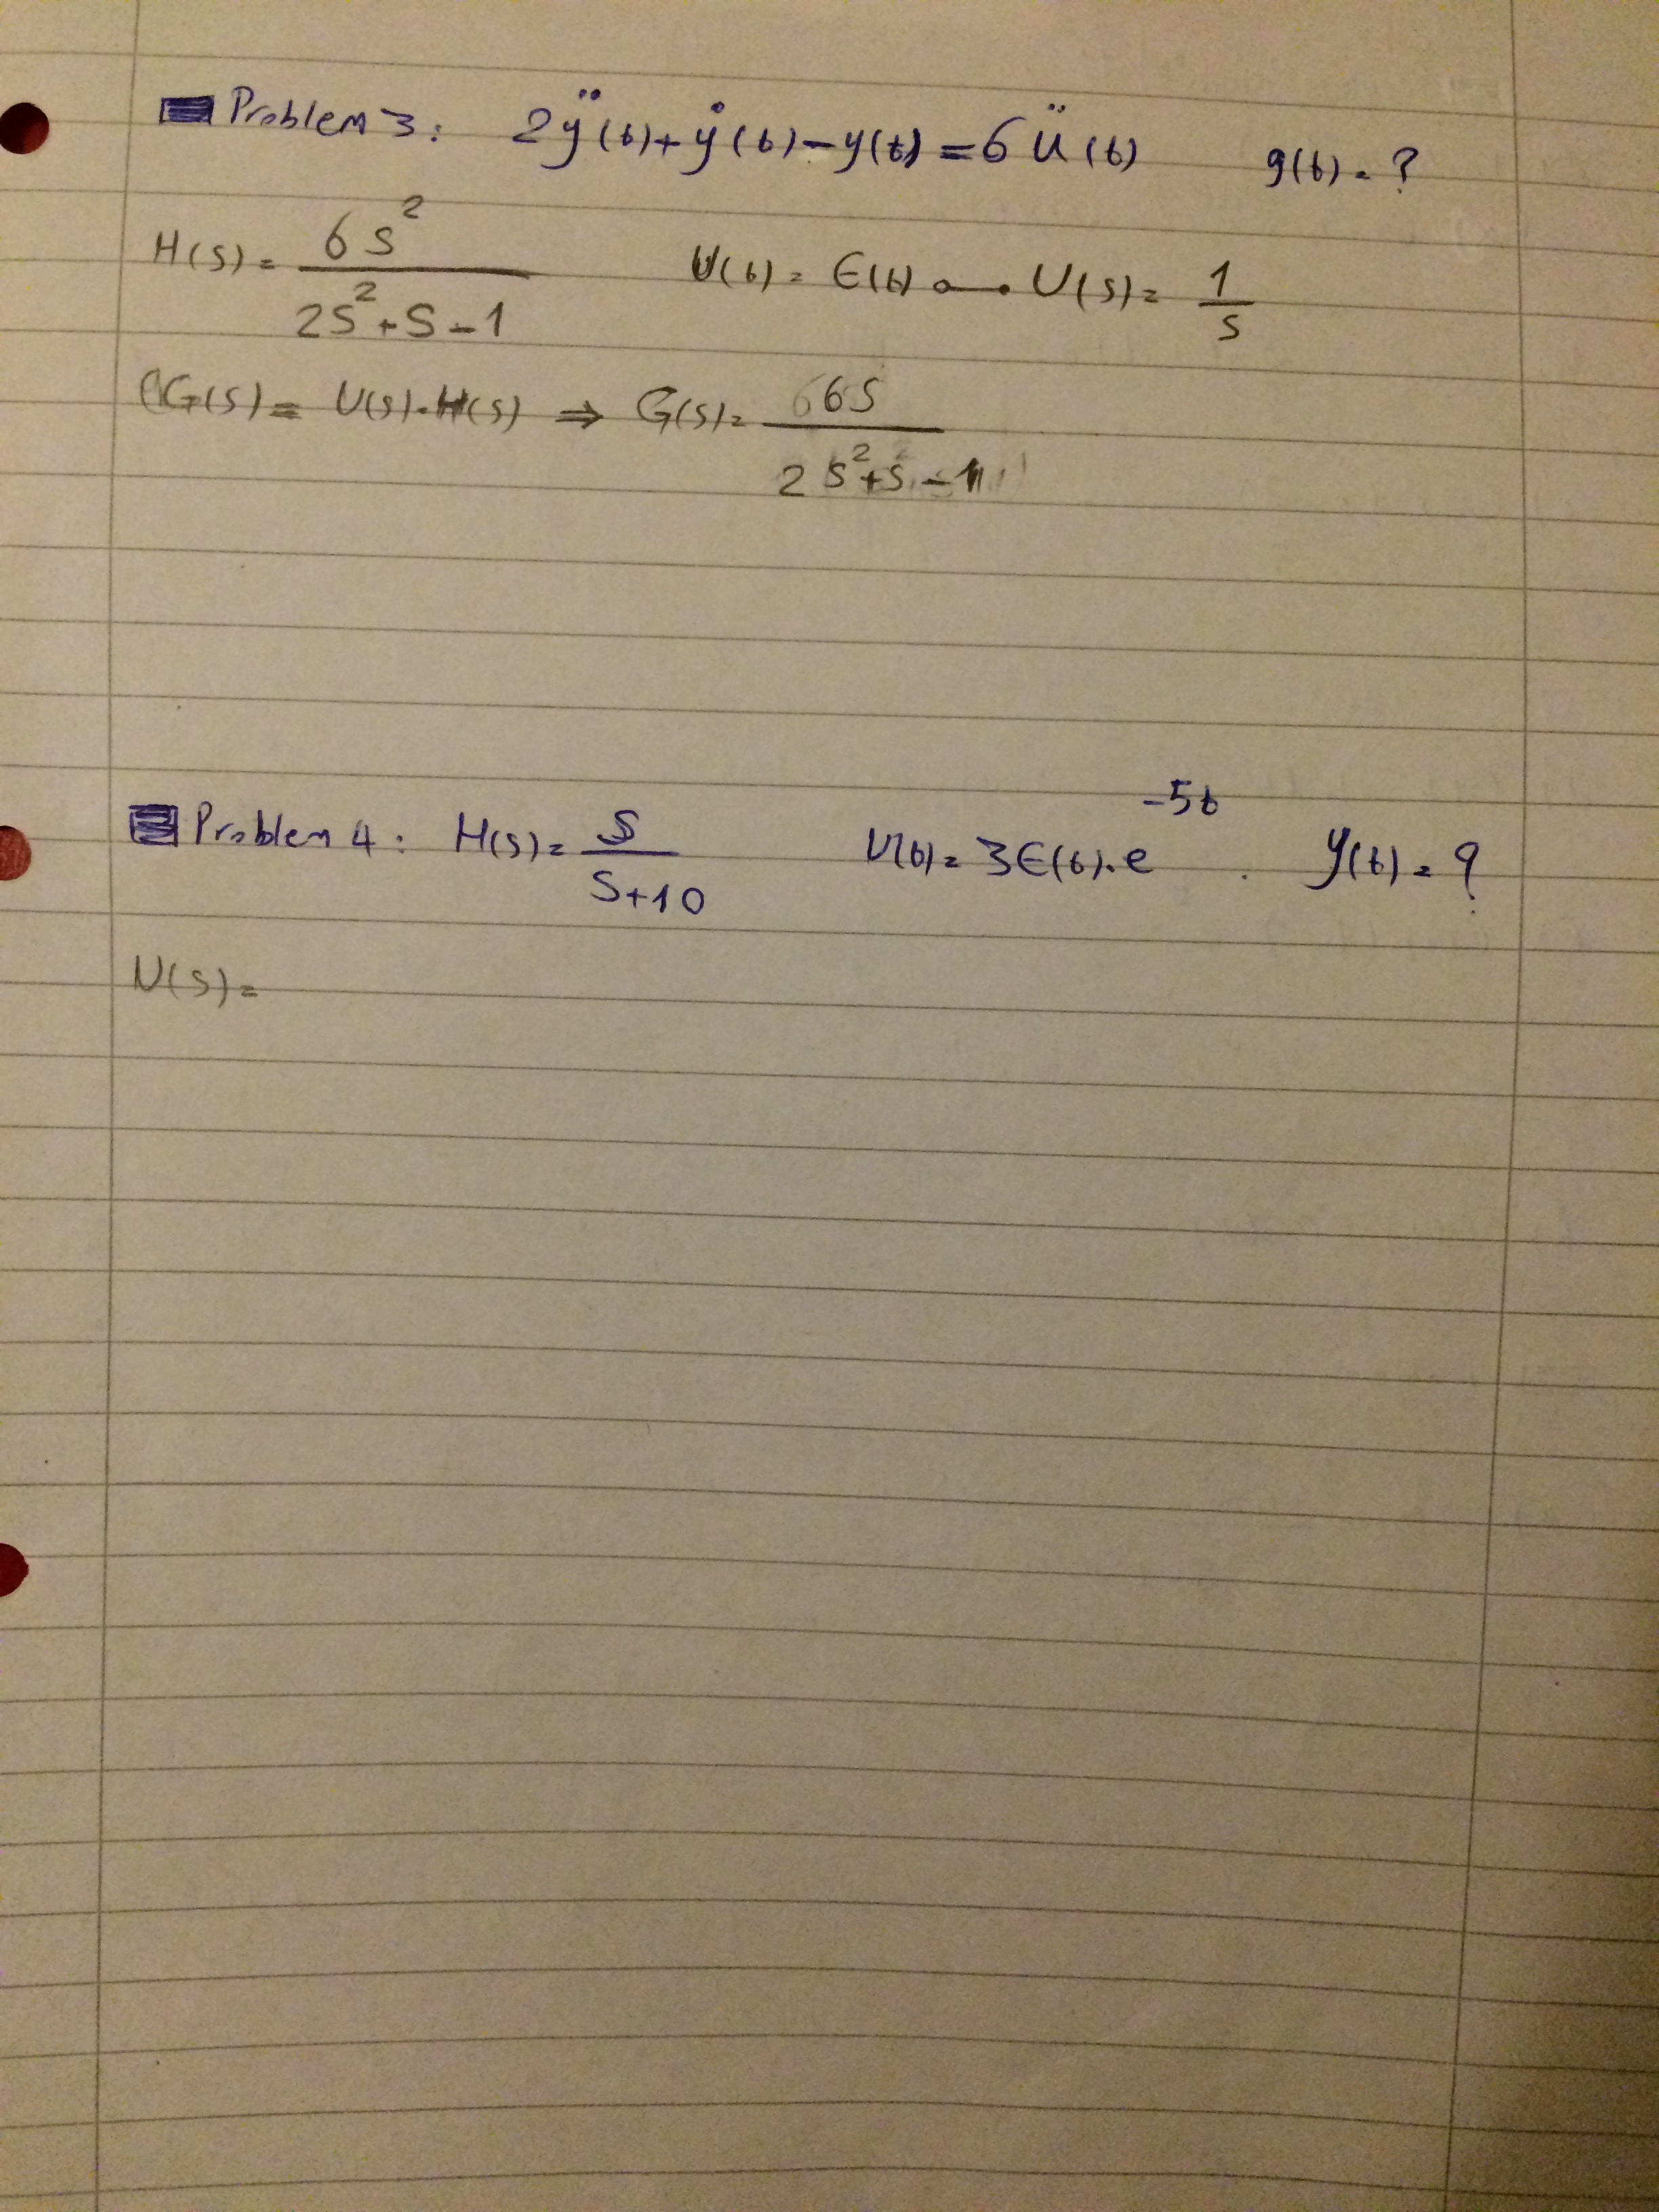 Problem 3: 2ÿ(t)+ẏ(t)-y(t)=6ü(t) g(t)=?
H(s)= 6s² / 2s²+s-1 u(t)= ε(t) ○—● U(s)= 1/s
G(s)= U(s)·H(s) ⇒ G(s)= 6s / 2s²+s-1
Problem 4: H(s)= s / s+10 u(t)= 3ε(t)·e^-5t y(t)=?
U(s)=